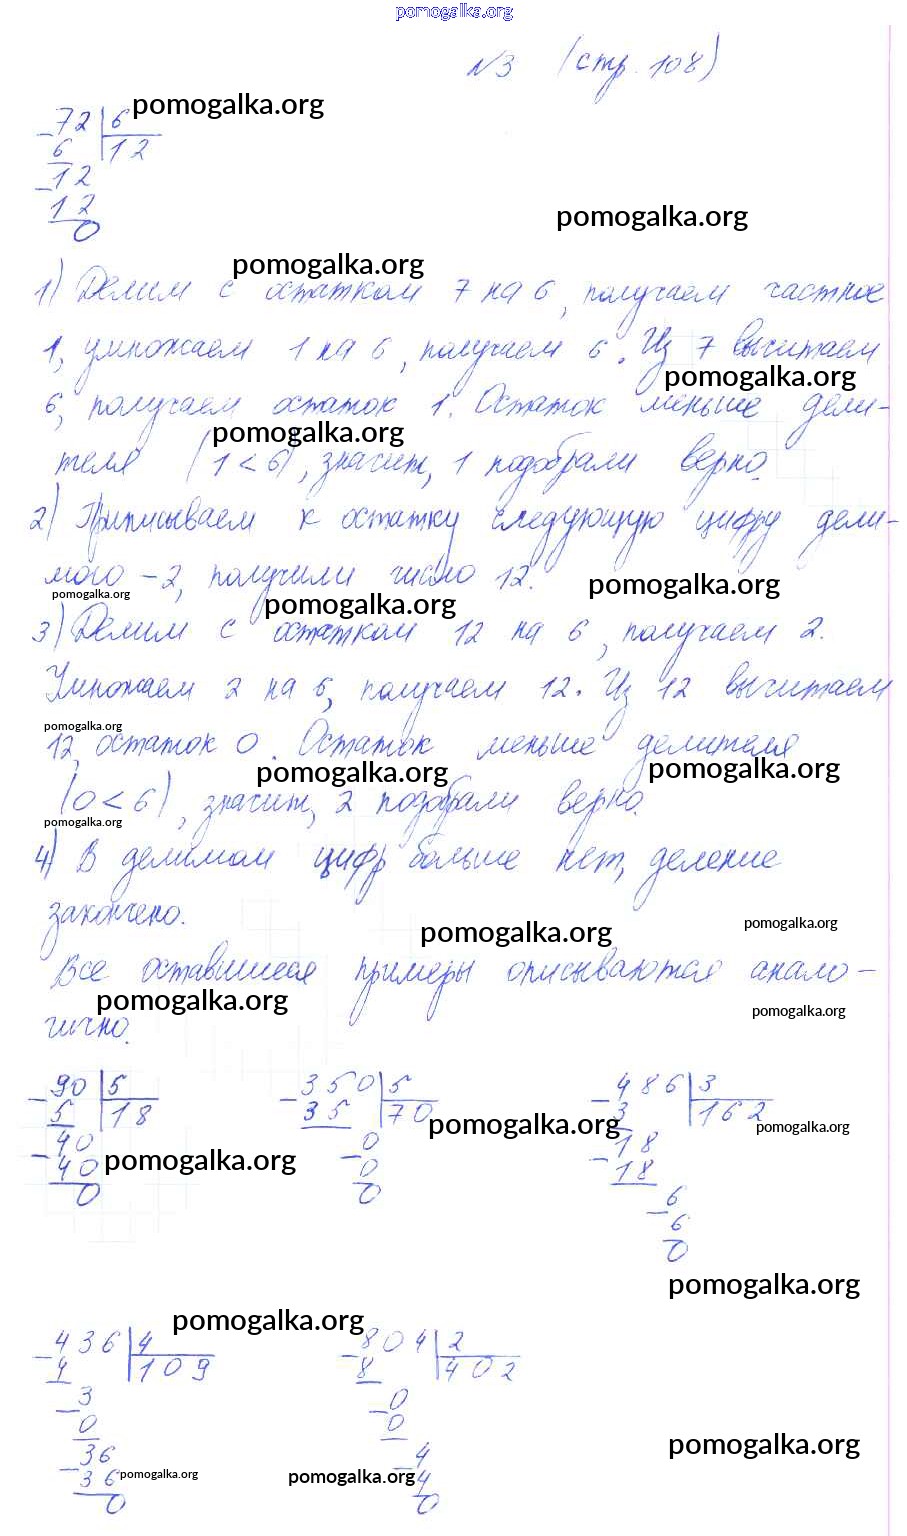 pomogalka.org
№3 (стр. 108)
pomogalka.org
- 72 | 6
6 | 12
- 12
12
0
pomogalka.org
pomogalka.org
1) Делим с остатком 7 на 6, получаем частное
1, умножаем 1 на 6, получаем 6. Из 7 вычитаем
pomogalka.org
6, получаем остаток 1. Остаток меньше дели-
pomogalka.org
теля (1 < 6), значит, 1 подобрали верно.
2) Приписываем к остатку следующую цифру дели-
мого - 2, получили число 12.
pomogalka.org
pomogalka.org
pomogalka.org
3) Делим с остатком 12 на 6, получаем 2.
Умножаем 2 на 6, получаем 12. Из 12 вычитаем
pomogalka.org
12, остаток 0. Остаток меньше делителя
pomogalka.org
pomogalka.org
(0 < 6), значит, 2 подобрали верно.
pomogalka.org
4) В делимом цифр больше нет, деление
закончено.
pomogalka.org
pomogalka.org
Все оставшиеся примеры описываются анало-
pomogalka.org
pomogalka.org
гично.
- 90 | 5
5 | 18
- 40
40
0
pomogalka.org
- 350 | 5
35 | 70
- 0
0
0
pomogalka.org
- 486 | 3
3 | 162
- 18
18
- 6
6
0
pomogalka.org
pomogalka.org
pomogalka.org
- 436 | 4
4 | 109
- 3
0
- 36
36
0
pomogalka.org
- 804 | 2
8 | 402
- 0
0
- 4
4
0
pomogalka.org
pomogalka.org